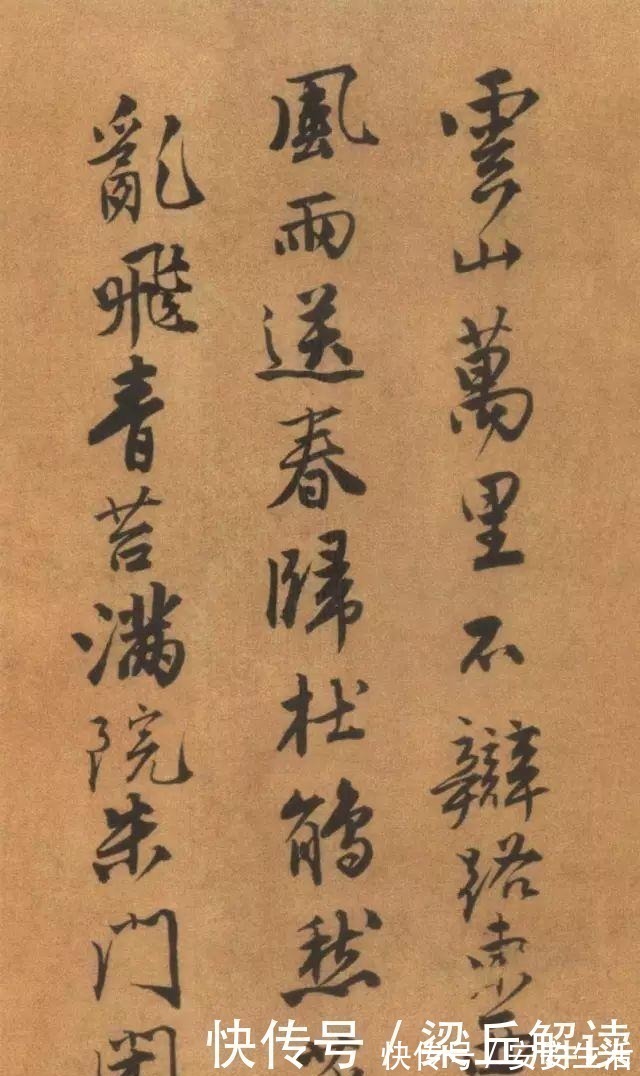 雲山萬里不辯路
風雨送春歸杜鵑愁
亂飛青苔滿院朱門
快传号 / 梁丘解读
快传号